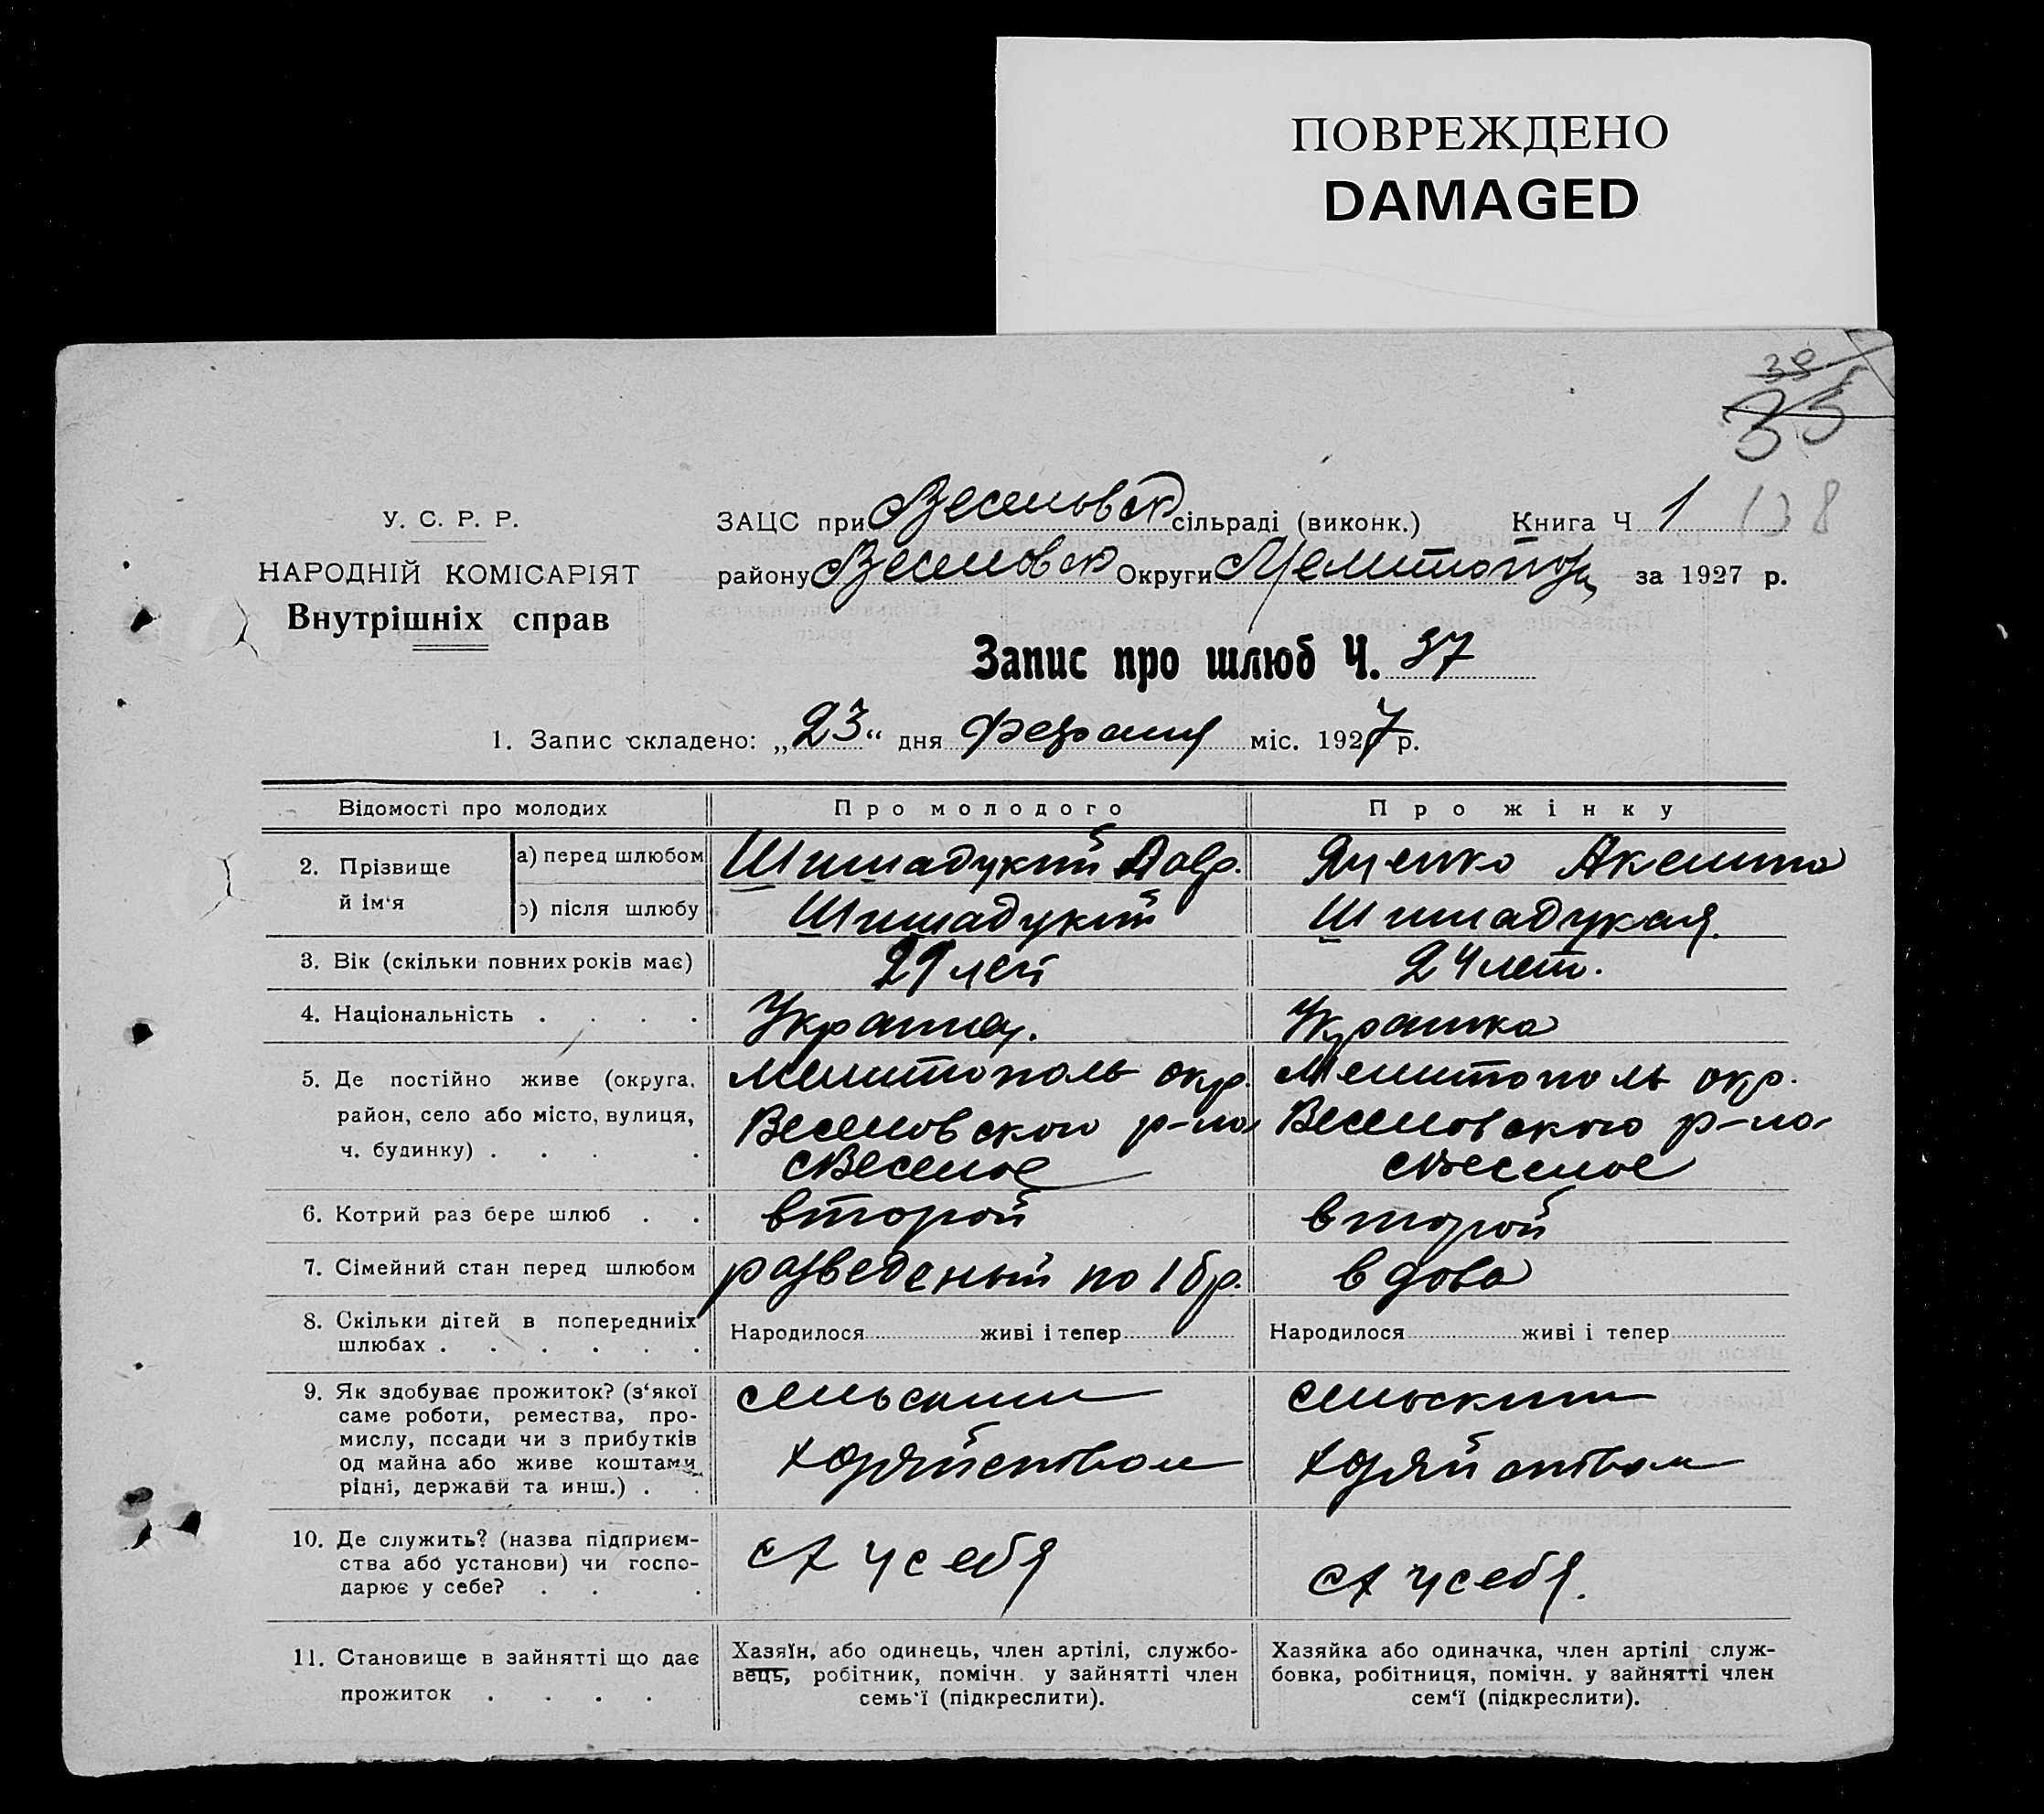 ПОВРЕЖДЕНО
DAMAGED
39
35
138
У. С. Р. Р.
НАРОДНІЙ КОМІСАРІЯТ
Внутрішніх справ
ЗАЦС при Веселовск сільраді (виконк.) Книга Ч 1
району Веселовск Округи Мелитопол за 1927 р.
Запис про шлюб Ч. 37
1. Запис складено: „23“ дня февраля міс. 1927 р.
Відомості про молодих Про молодого Про жінку
2. Прізвище й ім'я а) перед шлюбом Шишадукий Яценко Аксинья
б) після шлюбу Шишадукий Шишадукая.
3. Вік (скільки повних років має) 29 лет 24 лет.
4. Національність . . . . Украинец. Украинка
5. Де постійно живе (округа, Мелитополь окр. Мелитополь окр.
район, село або місто, вулиця, Веселовского р-на Веселовского р-на
ч. будинку) . . . . с Веселое с Веселое
6. Котрий раз бере шлюб . . второй второй
7. Сімейний стан перед шлюбом разведеный по 1 бр. вдова
8. Скільки дітей в попередниіх
шлюбах . . . . . . Народилося живі і тепер Народилося живі і тепер
9. Як здобуває прожиток? (з'якої сельским сельским
саме роботи, ремества, про-
мислу, посади чи з прибутків хозяйством хозяйством
од майна або живе коштами
рідні, держави та инш.) . .
10. Де служить? (назва підприєм- сх у себя сх у себя.
ства або установи) чи госпо-
дарює у себе? . . .
11. Становище в зайнятті що дає
прожиток . . . .
Хазяїн, або одинець, член артілі, службо-
вець, робітник, помічн. у зайнятті член
семь'ї (підкреслити).
Хазяйка або одиначка, член артілі служ-
бовка, робітниця, помічн. у зайнятті член
сем'ї (підкреслити).